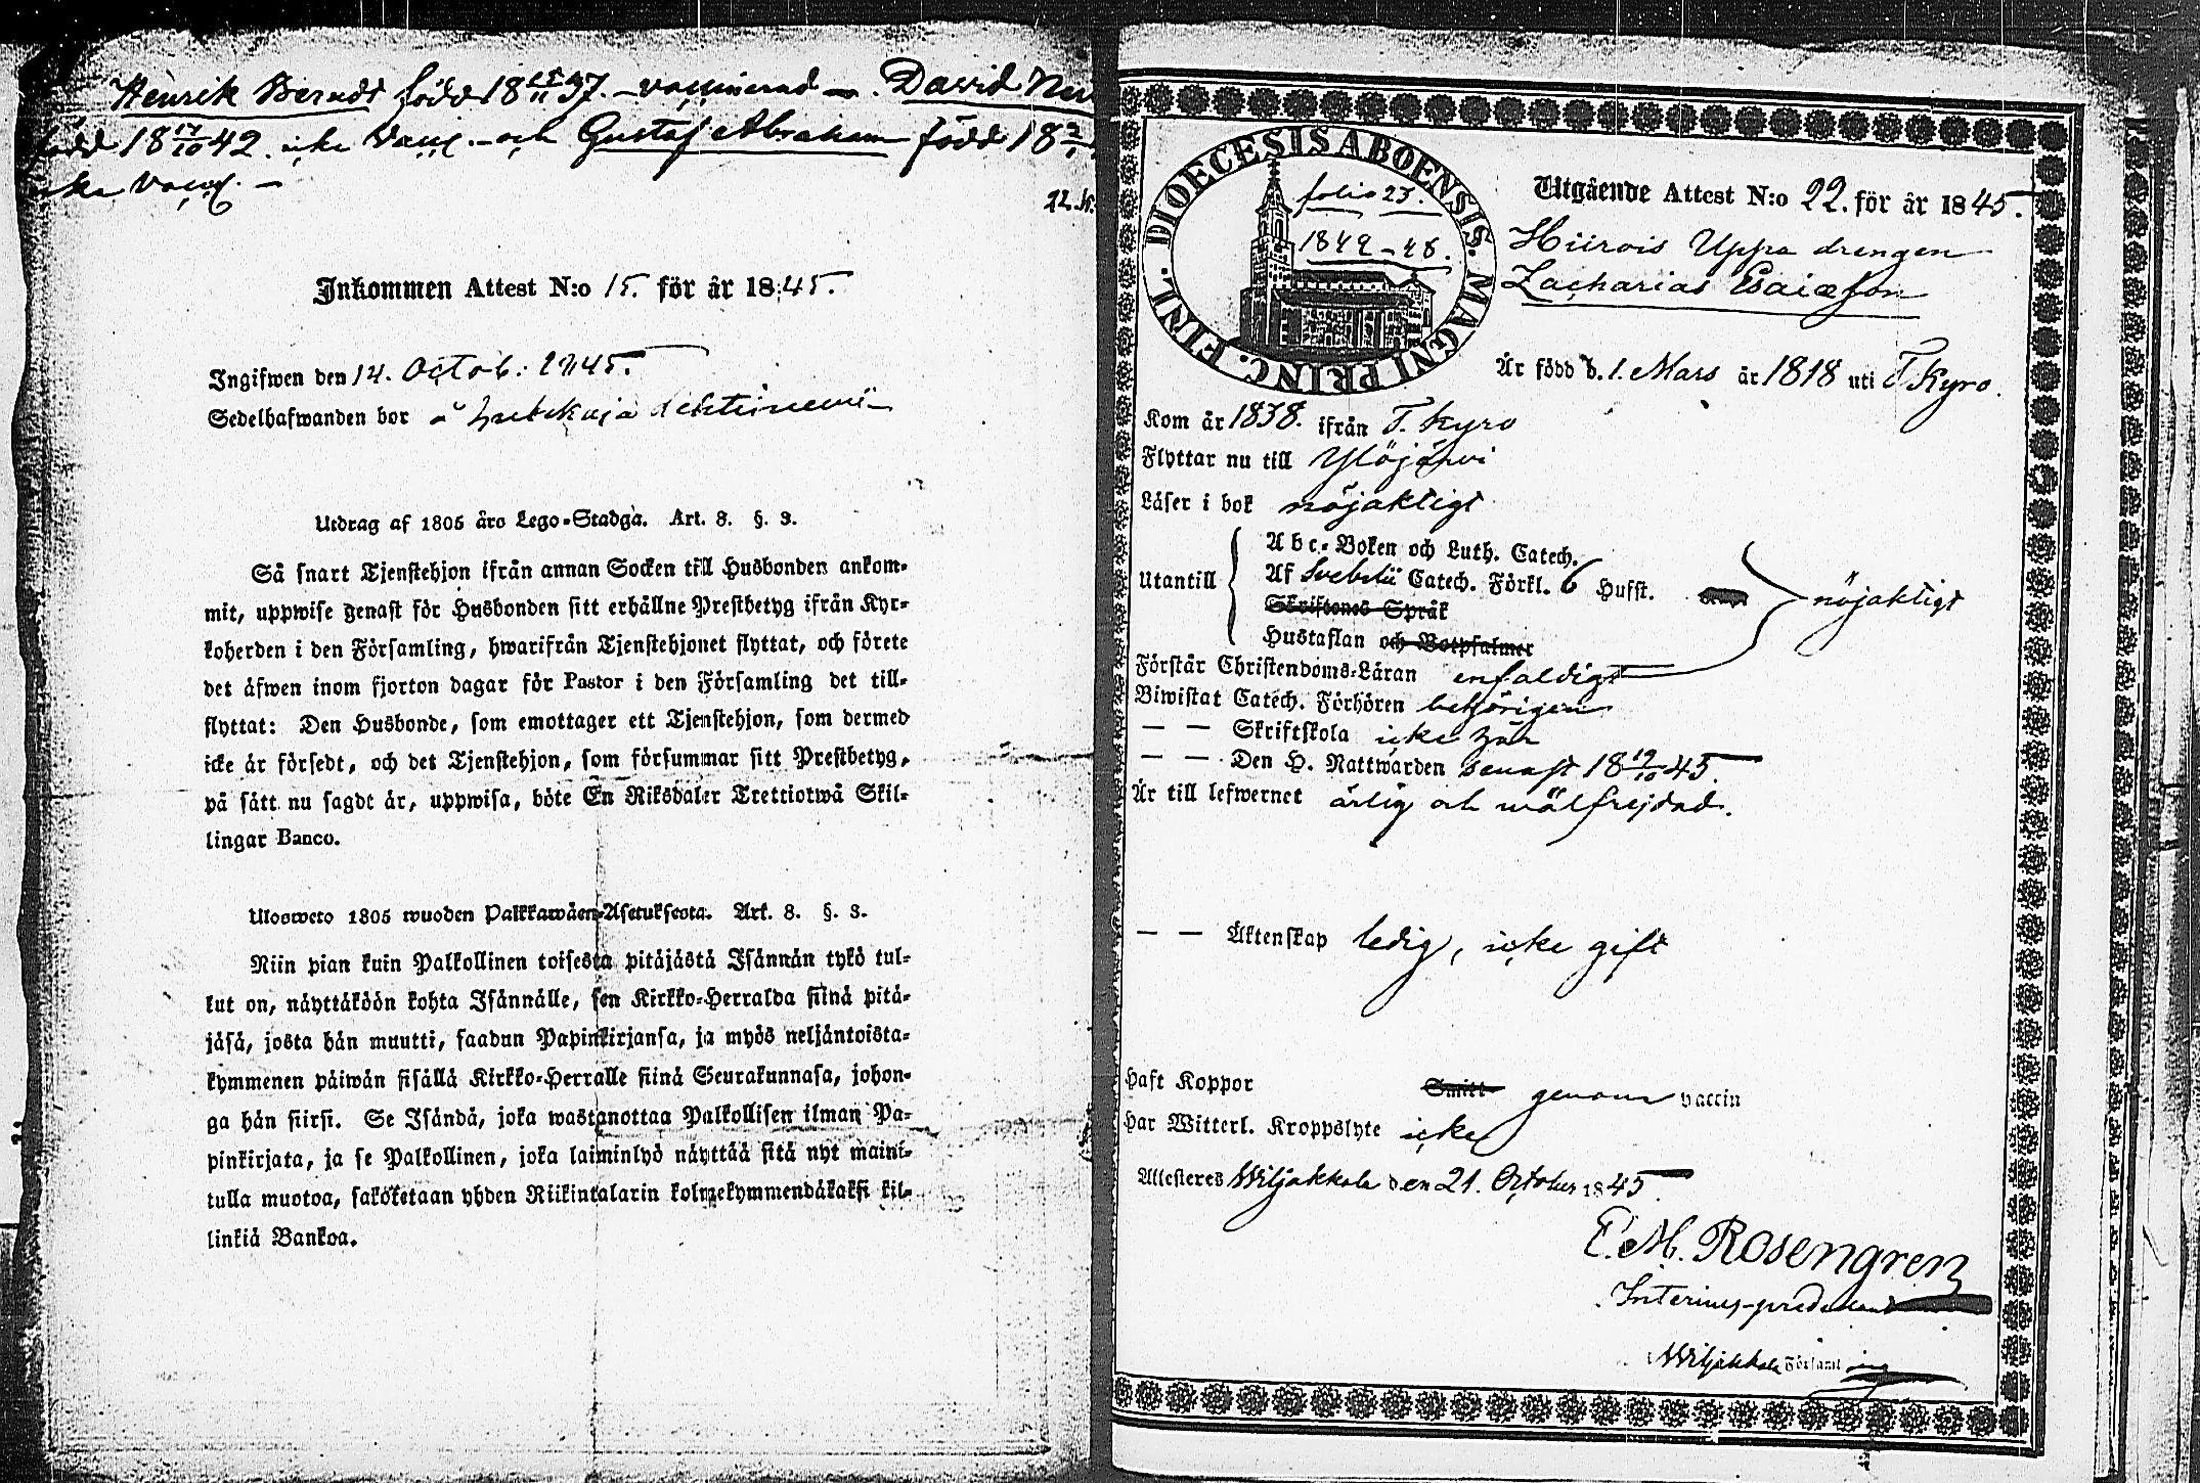 Henrik Berndt född 18 37. – vaccinerad –. David
född 18 17/10 42. icke vacc. – och Gustaf Abraham född 18
icke vacc. –
22.
Inkommen Attest N:o 15. för år 1845.
Ingifwen den 14. Octob. 1845.
Sedelhafwanden bor å
Utdrag af 1805 års Lego-Stadga. Art. 8. §. 3.
Så snart Tjenstehjon ifrån annan Socken till Husbonden ankom-
mit, uppwise genast för Husbonden sitt erhållne Prestbetyg ifrån Kyr-
koherden i den Församling, hwarifrån Tjenstehjonet flyttat, och förete
det äfwen inom fjorton dagar för Pastor i den Församling det till-
flyttat: Den Husbonde, som emottager ett Tjenstehjon, som dermed
icke är försedt, och det Tjenstehjon, som försummar sitt Prestbetyg,
på sätt nu sagdt är, uppwisa, böte En Riksdaler Trettiotwå Skil-
lingar Banco.
Ulosweto 1805 wuoden Palkkawäen-Asetuksesta. Art. 8. §. 3.
Niin pian kuin Palkollinen toisesta pitäjästä Isännän tykö tul-
lut on, näyttäköön kohta Isännälle, sen Kirkko-Herralda siinä pitä-
jäsä, josta hän muutti, saadun Papinkirjansa, ja myös neljäntoista-
kymmenen päiwän sisällä Kirkko-Herralle siinä Seurakunnasa, johon-
ga hän siirsi. Se Isändä, joka wastanottaa Palkollisen ilman Pa-
pinkirjata, ja se Palkollinen, joka laiminlyö näyttää sitä nyt maini-
tulla muotoa, sakotetaan yhden Riikintalarin kolmekymmendäkaksi kil-
linkiä Bankoa.
DIOECESIS ABOENSIS. MAGNI PRINC. FINL.
folio 23.
1842–48.
Utgående Attest N:o 22. för år 1845.
Hiirois Uppa drengen
Zacharias Esaiæson
Är född d. 1. Mars år 1818 uti T Kyro.
Kom år 1838. ifrån T. Kyro
Flyttar nu till Ylöjärvi
Läser i bok nöjaktigt
Utantill
Abc-Boken och Luth. Catech.
Af Svebelii Catech. Förkl. 6 Hufst.
Skriftenes Språk
Hustaflan och Botpsalmer
nöjaktigt
Förstår Christendoms-Läran enfaldigt
Biwistat Catech. Förhören behörigen
— — Skriftskola icke här
— — Den H. Nattwarden senast 18 19/10 45.
Är till lefwernet ärlig och wälfrejdad.
— — Äktenskap ledig, icke gift
Haft Koppor Smitt genom vaccin
Har Witterl. Kroppslyte icke
Attesteres Wiljakkala den 21. October 1845.
E. M. Rosengren
Interims-predikant
Wiljakkala Församling